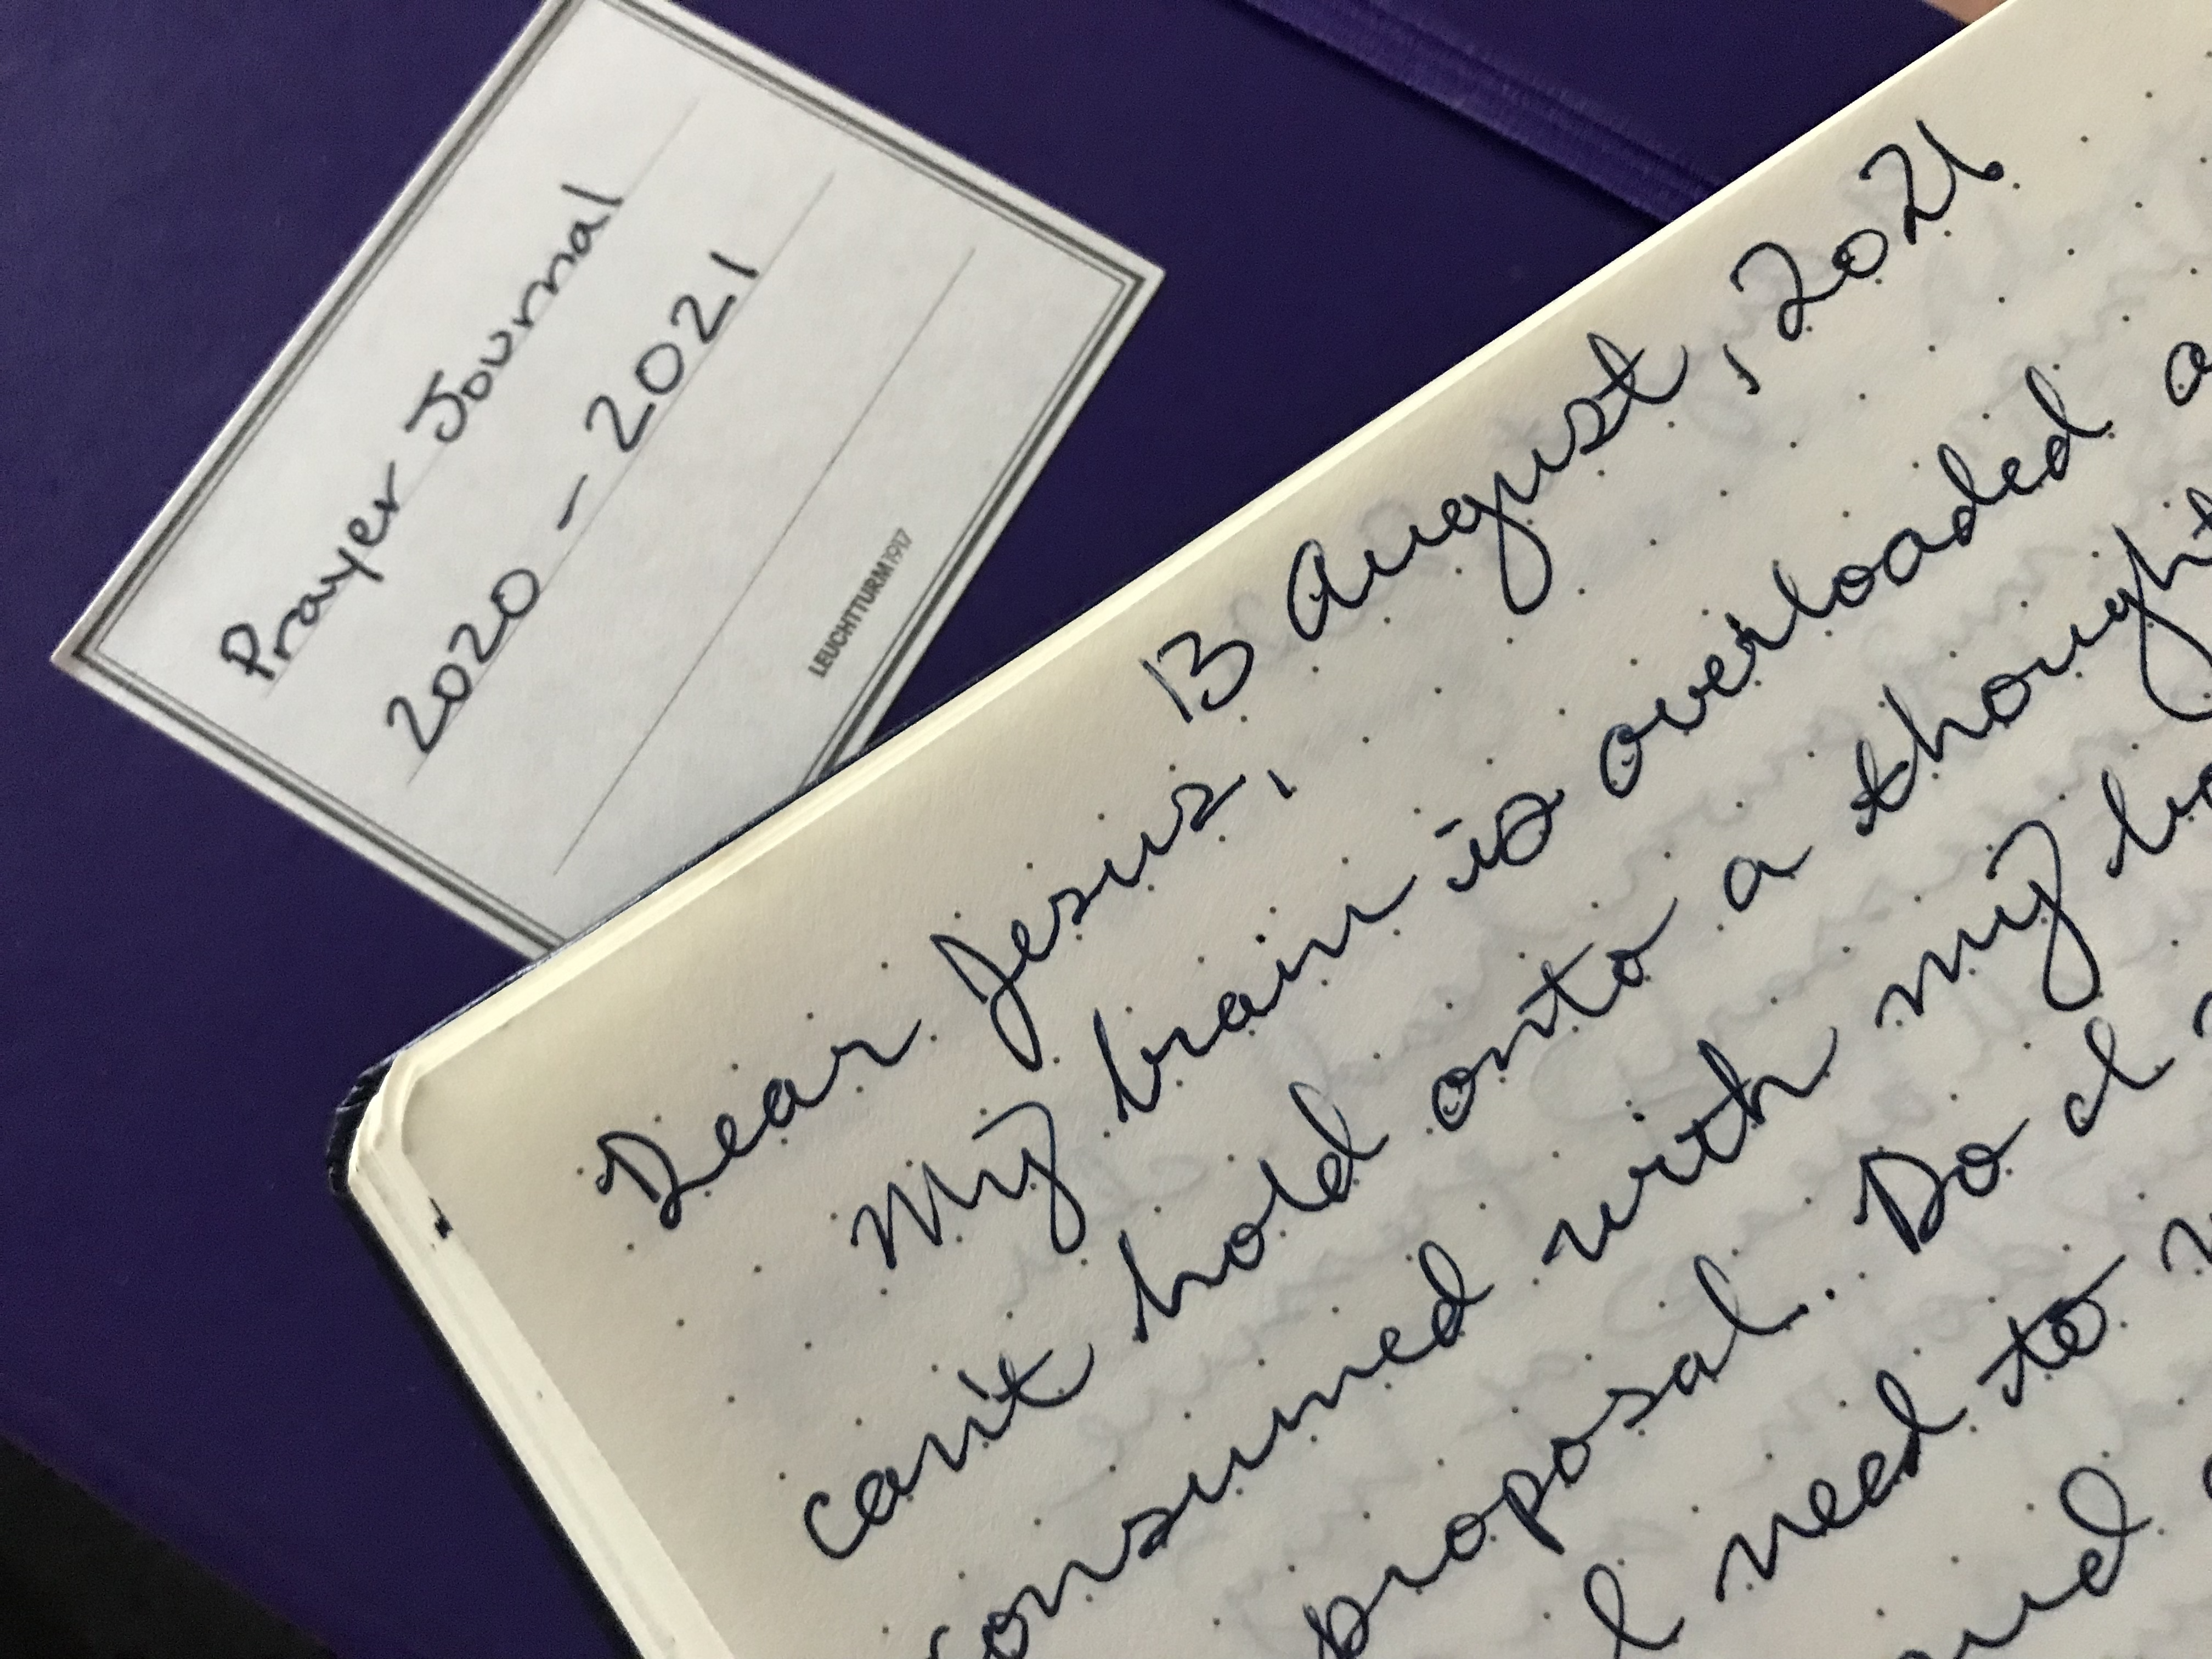 Prayer Journal
2020 - 2021
LEUCHTTURM1917
13 August, 2021.
Dear Jesus,
My brain is overloaded
can't hold onto a thought
consumed with my
proposal. Do I
I need to